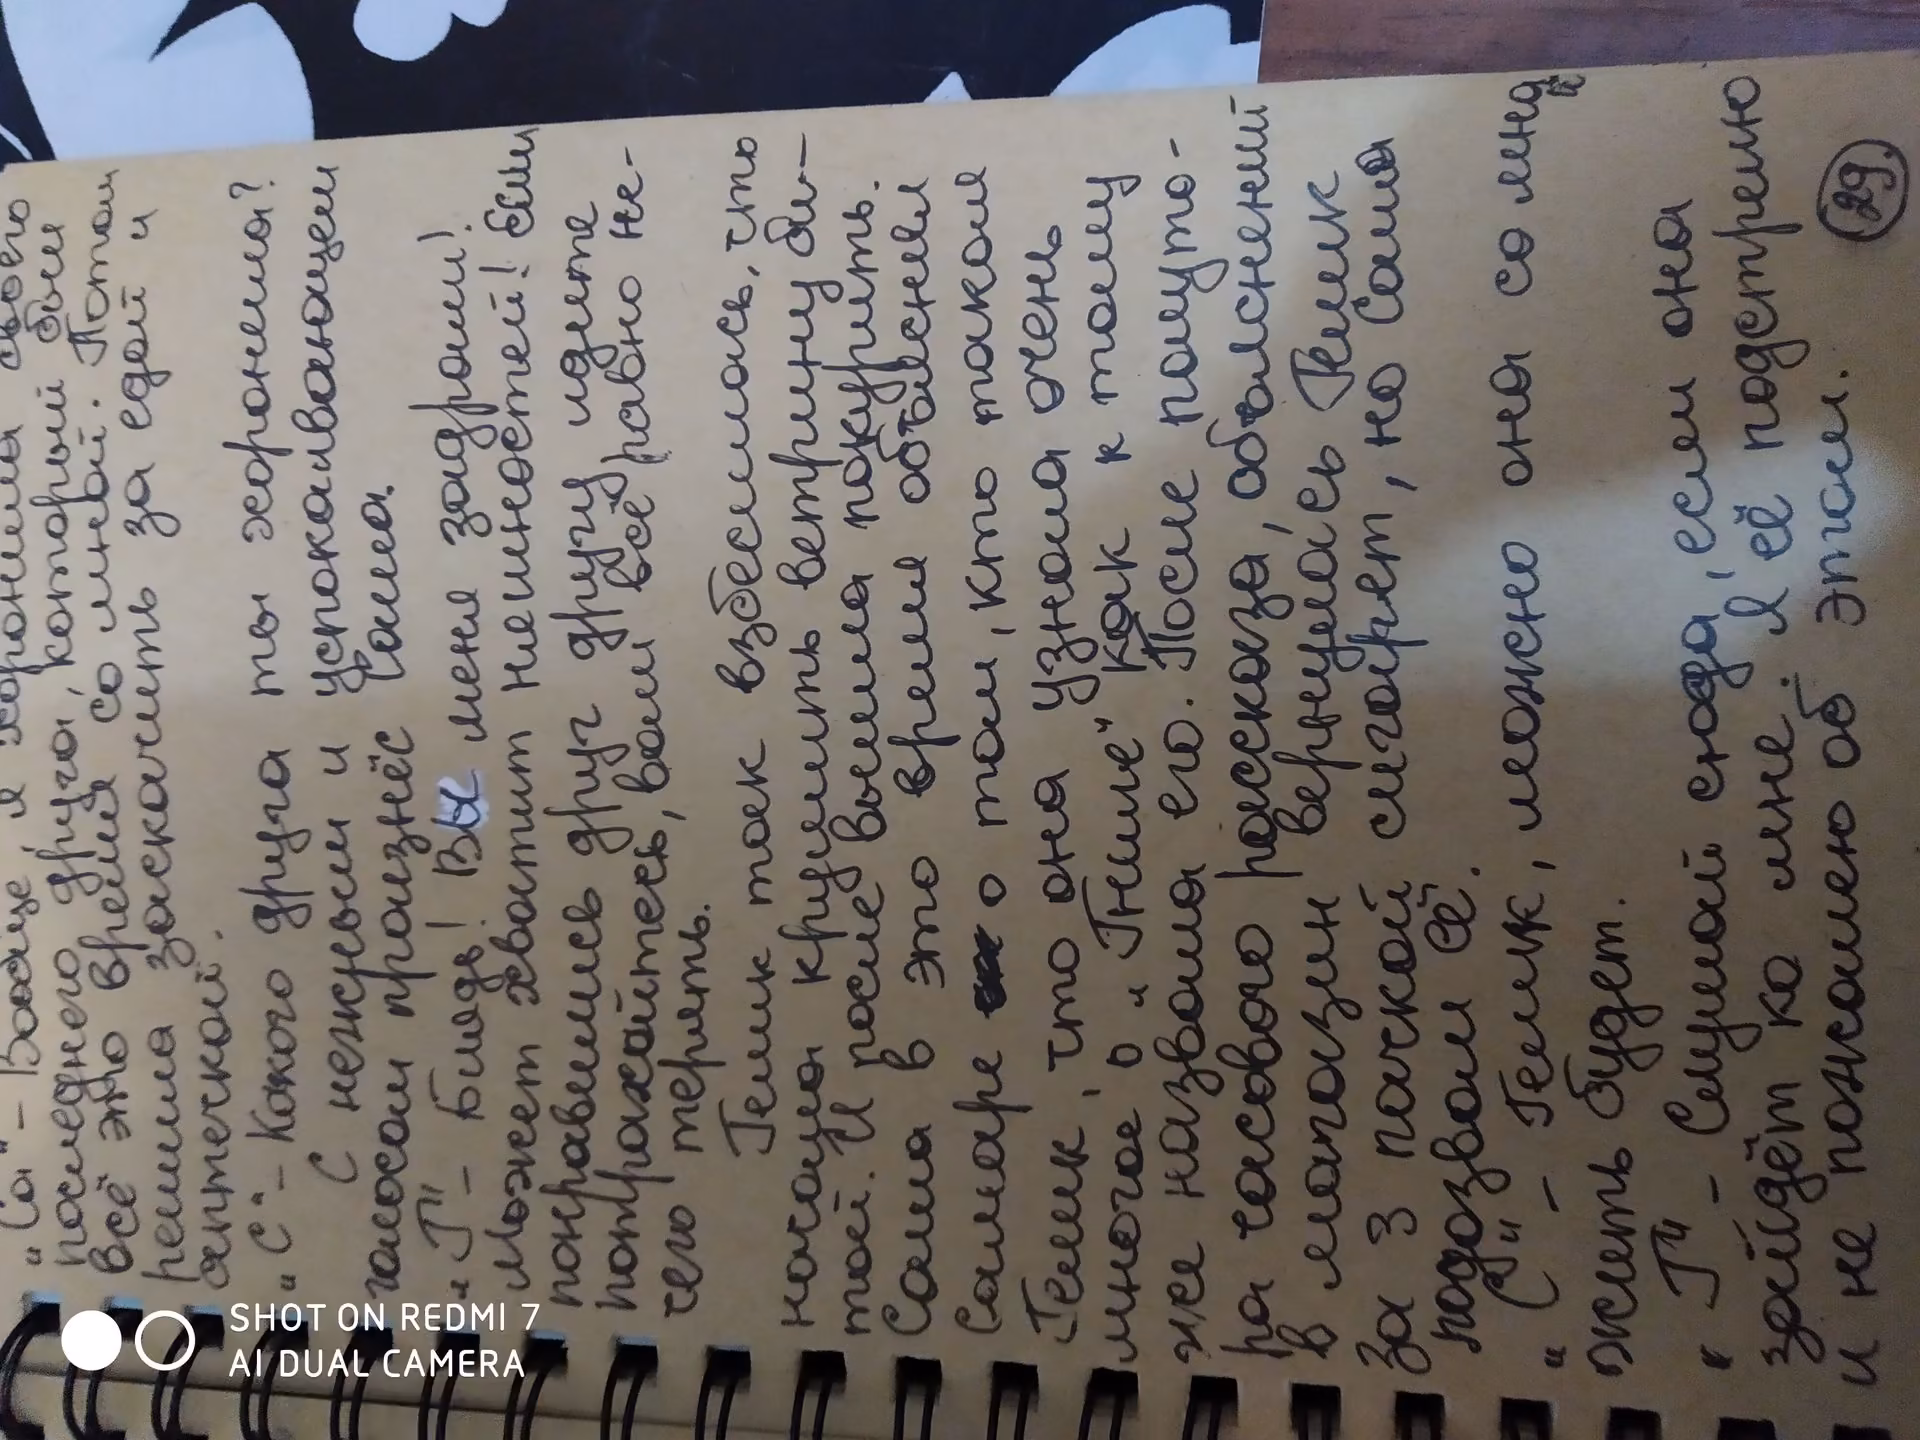 "Са" - Ваще, я хоронила своего
последнего друга, который был
всё это время со мной. Потом
решила заскачить за едой и
аптечкой.
"С" - Какого друга ты хоронила?
С нежным и успокаивающем
голосом произнёс Сама.
"Г" - Блядь! Вы меня задрали!
Может хватит нешностей! Если
понравились друг другу идите
потрахайтесь, вам всё равно не-
чего терять.
Гелик так взбесилась, что
начала крушить ветрину би-
той. И после вышла покурить.
Сама в это время объеснял
Самаре о том, кто такой
Гелик, что она узнала очень
много о "Гниле" как к тому
же назвала его. После полуто-
ра часового рассказа, обьяснений
в магазин вернулась Гелик
за 3 пачкой сигарет, но Сама
подозвал её.
"С" - Гелик, можно она со мной
жить будет.
"Г" - Слушай сюда, если она
зайдёт ко мне. Я её подстрелю
и не пожалею об этом.
29.
SHOT ON REDMI 7
AI DUAL CAMERA